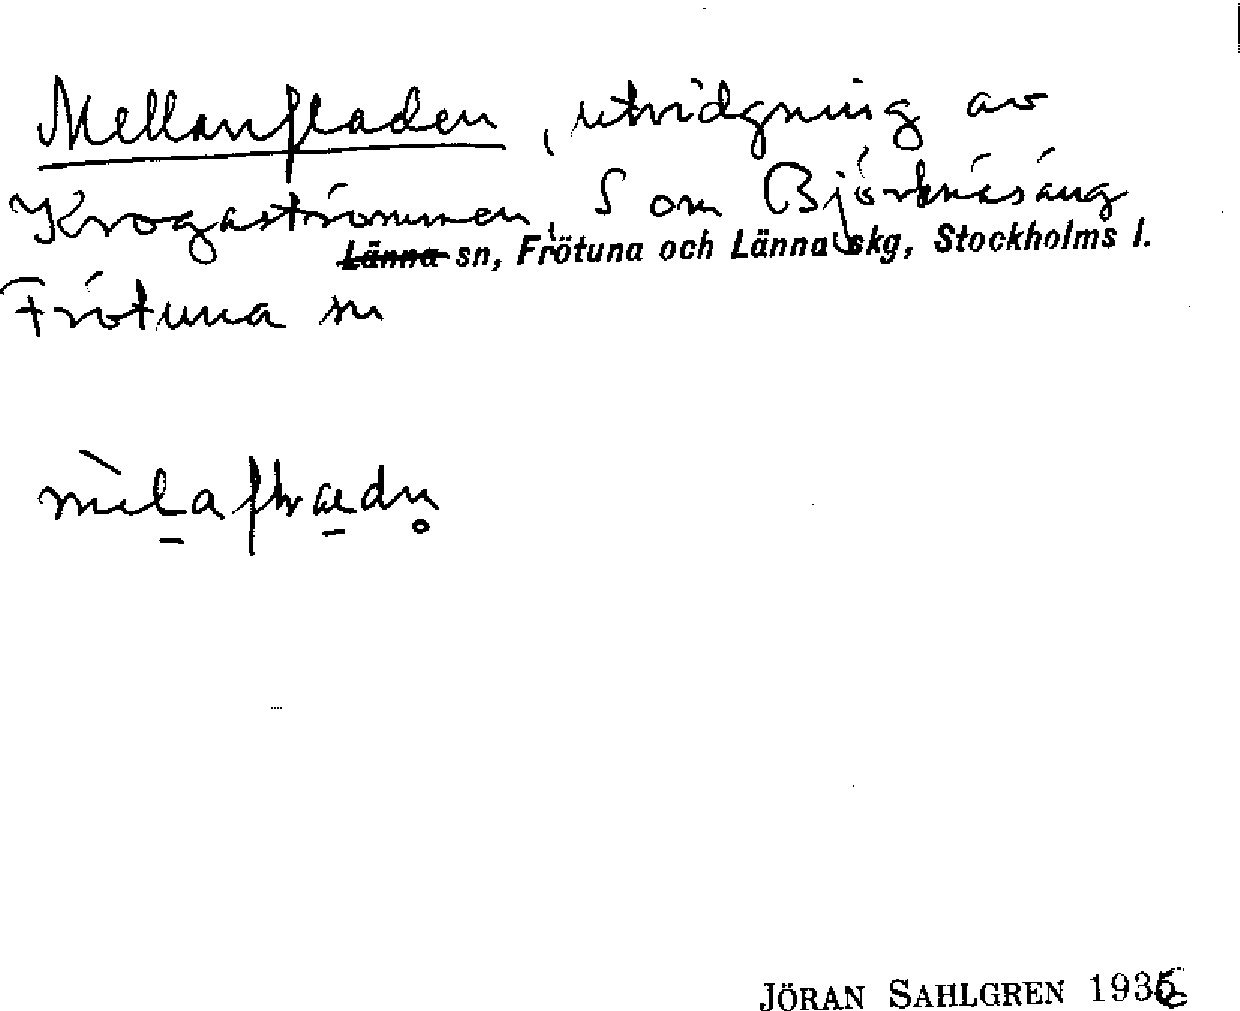 Mellanfladen, utvidgning av
Krogaströmmen, S om Björknäsäng
Länna sn, Frötuna och Länna skg, Stockholms l.
Frötuna sn
JÖRAN SAHLGREN 1936